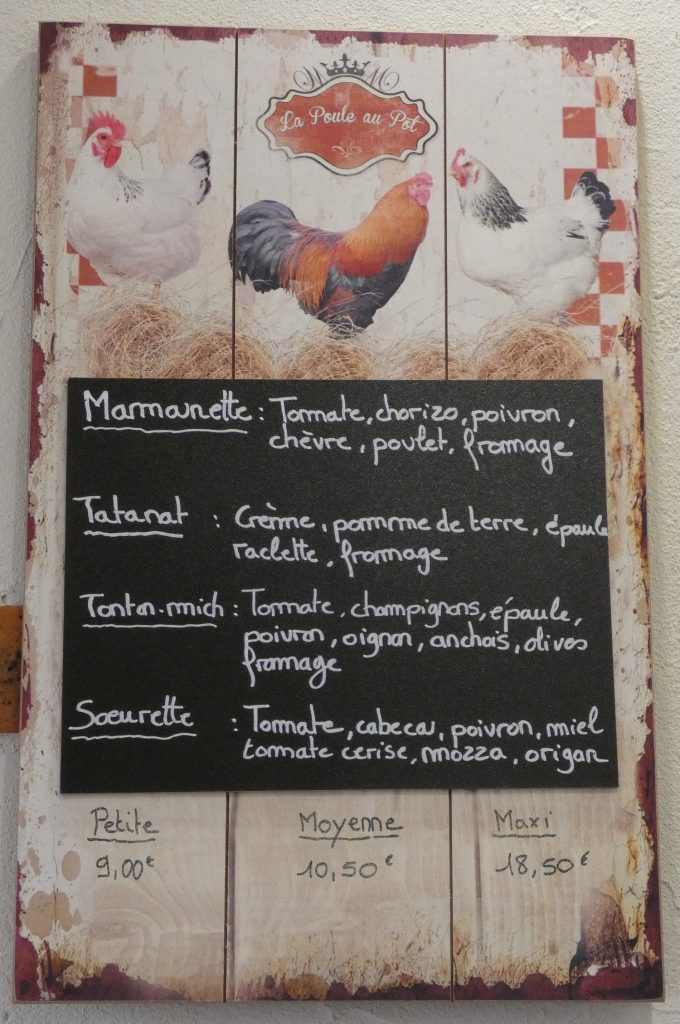 La Poule au Pot
Mamounette : Tomate, chorizo, poivron,
chèvre, poulet, fromage
Tatanat : Crème, pomme de terre, épaule
raclette, fromage
Tonton-mich : Tomate, champignons, épaule,
poivron, oignon, anchois, olives
fromage
Soeurette : Tomate, cabeca, poivron, miel
tomate cerise, mozza, origan
Petite Moyenne Maxi
9,00€ 10,50€ 18,50€